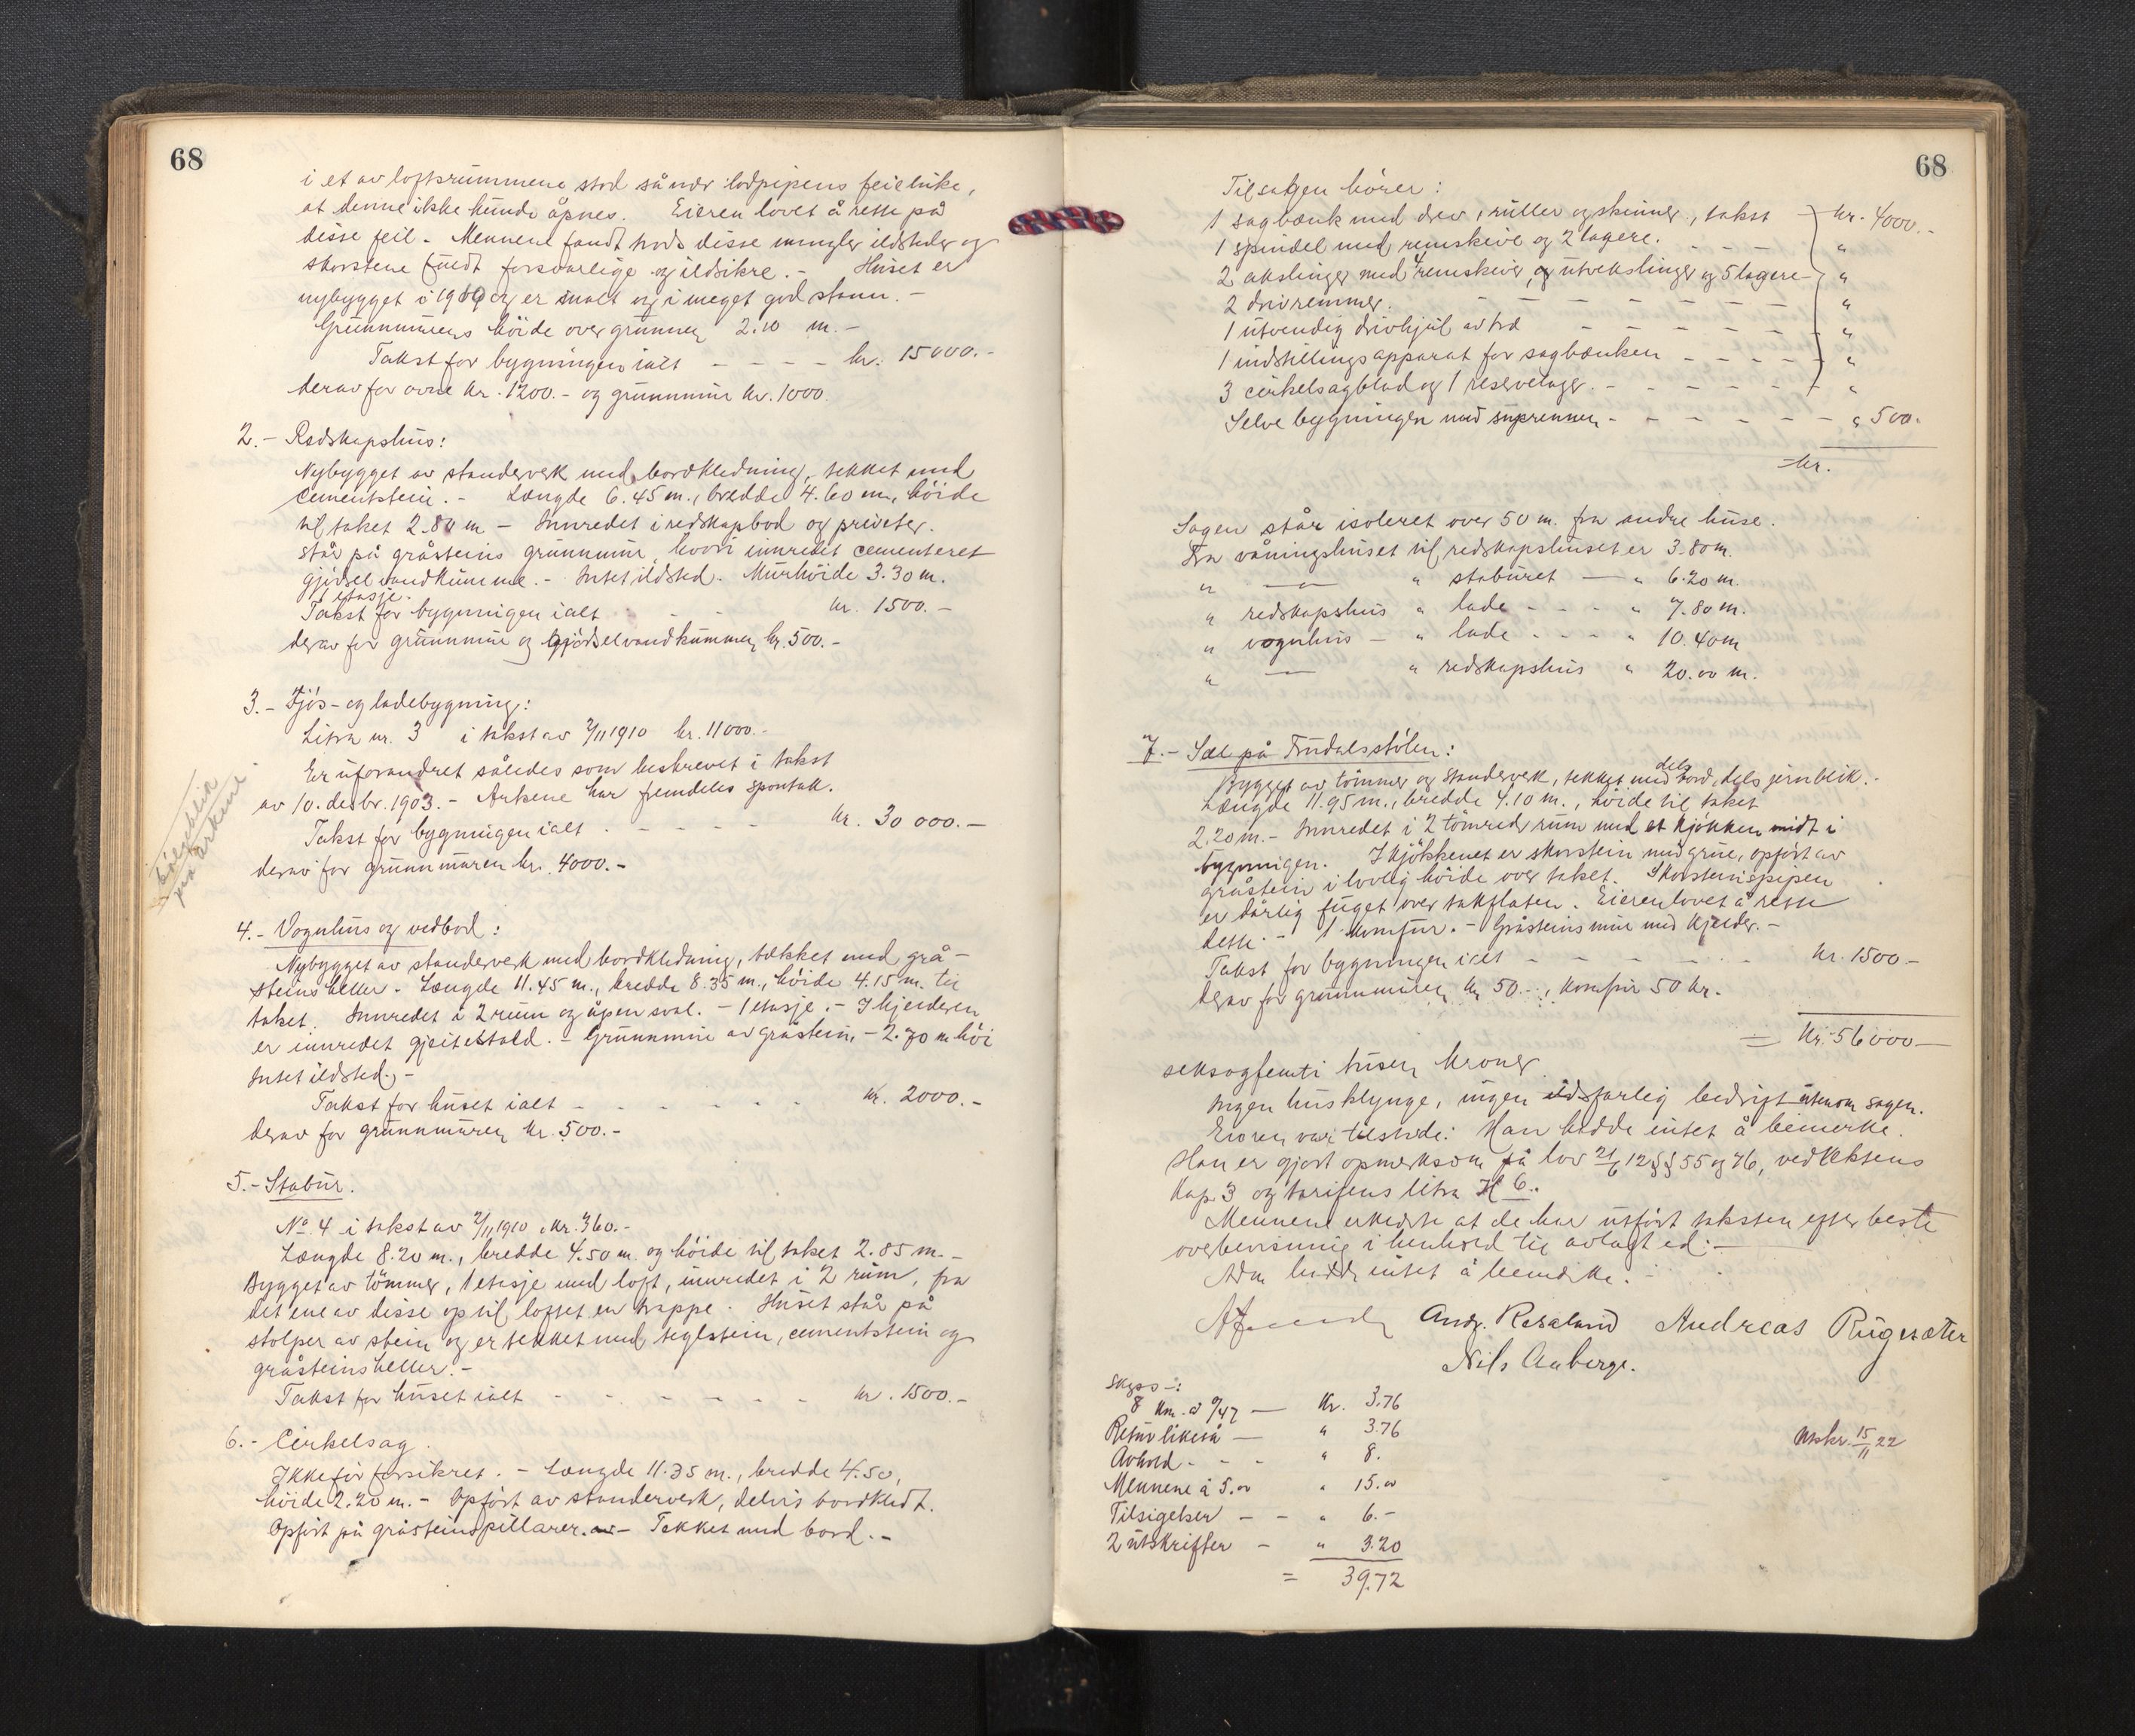 68
i et av loftsrummene stod så nær lodpipens feieluke,
at denne ikke kunde åpnes. Eieren lovet å rette på
disse feil. - Mennene fandt trods disse mangler ildsteder og
skorstene fuldt forsvarlige og ildsikre. - Huset er
nybygget i 19 og er malt og i meget god stann. -
Grunnmurens höide over grunnen 2.10 m. -
Takst for bygningen ialt - - - - kr. 15000.-
derav for ovne kr. 1200.- og grunnmur kr. 1000.
2. - Redskapshus:
Nybygget av standerverk med bordkledning, tekket med
cementstein. - Længde 6.45 m., bredde 4.60 m., höide
til taket 2.80 m - Innredet i redskapbod og priveter.
står på gråsteins grunnmur, hvori innredet cementeret
gjödselvandkumme. - Intet ildsted. Murhöide 3.30 m.
1 etasje.
Takst for bygningen ialt - - kr. 1500.-
derav for grunnmur og gjödselvandkummen kr. 500.-
3. - Fjös- og ladebygning:
Litra nr. 3 i takst av 2/11 1910 kr. 11000.-
Er uforandret således som beskrevet i takst
av 10. desbr. 1903. - Arkene har fremdeles spontak.
Takst for bygningen ialt - - - - kr. 30 000.-
derav for grunnmuren kr. 4000.-
bölgeblik
på arkene
4. - Vognhus og vedbod:
Nybygget av standerverk med bordkledning, tækket med grå-
steinsheller. Længde 11.45 m., bredde 8.35 m., höide 4.15 m. til
taket. Innredet i 2 rum og åpen sval. - 1 etasje. - I kjelderen
er innredet gjeitestald. - Grunnmur av gråstein, - 2.70 m höi
Intet ildsted. -
Takst for huset ialt - - - - - kr. 2000.-
derav for grunnmuren kr. 500.-
5. - Stabur.
No 4 i takst av 2/11 1910, kr. 360.-
Længde 8.20 m., bredde 4.50 m. og höide til taket 2.85 m. -
Bygget av tömmer, 1 etasje med loft, innredet i 2 rum, fra
det ene av disse op til loftet en trappe. Huset står på
stolper av stein og er tekket med teglstein, cementstein og
gråsteinsheller. -
Takst for huset ialt - - - - - - kr. 1500.-
6. - Cirkelsag.
Ikke för forsikret. - Længde 11.35 m., bredde 4.50,
höide 2.20 m. - Opfört av standerverk, delvis bordkledt.
Opfört på gråsteinspillarer. - Tekket med bord. -
68
Til sagen hörer:
1 sagbænk med drev, ruller og skinner, takst - kr. 4000.-
1 spindel med remskive og 2 lagere. - - - "
2 akslinger med 4 remskiver, og utvekslinger og 5 lagere - "
2 drivremmer. - - - - - - "
1 utvendig drivhjul av træ - - - - - "
1 indstillingsapparat for sagbænken - - - - "
3 cirkelsagblad og 1 reservelager. - - - - - "
Selve bygningen med suprennen - - - - - - " 500.
kr.
Sagen står isoleret over 50 m. fra andre huse.
Fra våningshuset til redskapshuset er 3.80 m.
" — " staburet — " 6.20 m.
" redskapshus " lade - - - " 7.80 m.
" vognhus - " lade - - - " 10.40 m
" — " redskapshus " 20.00 m.
7. - Sæl på Trudalsstölen:
Bygget av tömmer og standerverk, tekket med dels bord, dels jernblik. -
Længde 11.95 m., bredde 4.10 m., höide til taket
2.20 m. - Innredet i 2 tömrede rum med et kjökken midt i
bygningen. I kjökkenet er skorstein med grue, opfört av
gråstein i lovlig höide over taket. Skorsteinspipen
er dårlig fuget over takflaten. Eieren lovet å rette
dette. - 1 komfur. - Gråsteinsmur med kjelder. -
Takst for bygningen ialt - - - - - - kr. 1500 -
derav for grunnmuren kr 50.-, komfur 50 kr.
= kr. 56000 —
seksogfemti tusen kroner.
Ingen husklynge, ingen ildsfarlig bedrift utenom sagen.
Eieren var tilstede. Han hadde intet å bemerke.
Han er gjort opmerksom på lov 21/6 12 §§ 55 og 76, vedtektens
Kap. 3 og tarifens litra H 6.
Mennene erklærte at de har utfört taksten efter beste
overbevisning i henhold til avlagt ed. -
hadde intet å bemerke.
Andr. Rosalund Andreas Rugsæter
Nils Aaberge.
Skyss -:
8 km. a 0/47 — Kr. 3.76
Retur likeså — " 3.76
Avhold - - - " 8.
Mennene à 5.00 " 15.00
Tilsigelser - - " 6.-
2 utskrifter - " 3.20
= 39.72
Utskr. 15/11 22